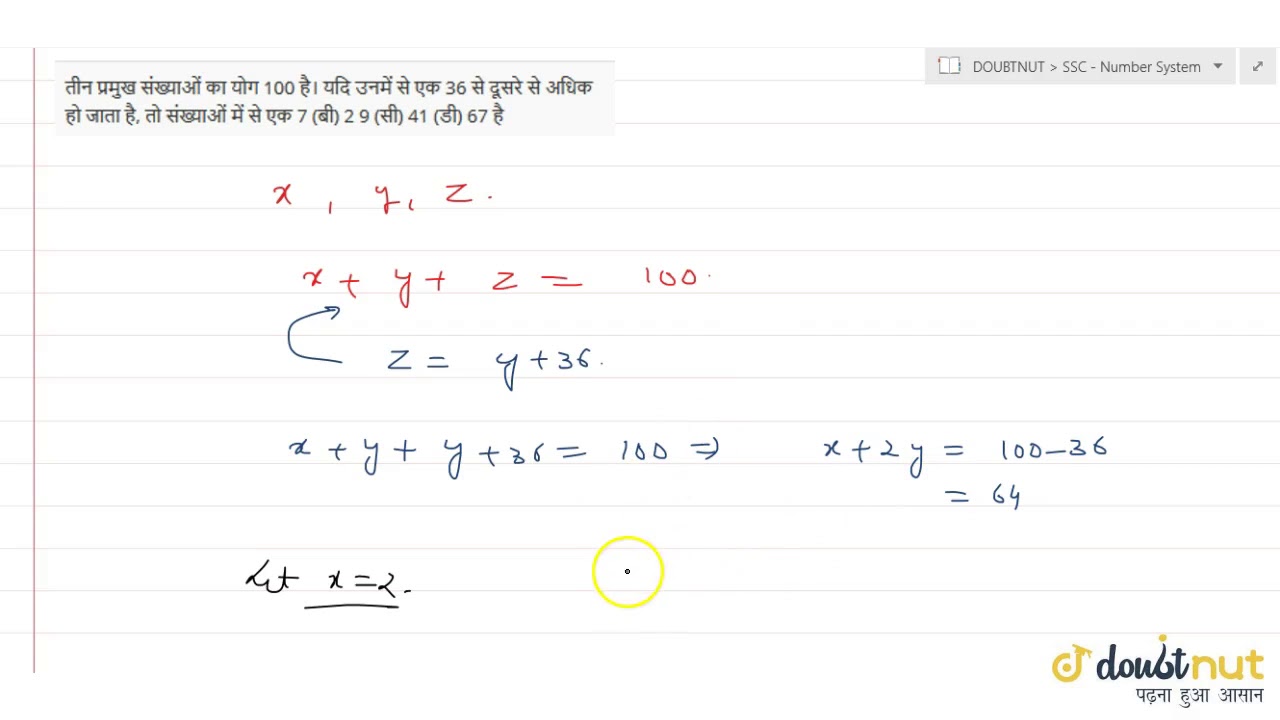 DOUBTNUT > SSC - Number System
तीन प्रमुख संख्याओं का योग 100 है। यदि उनमें से एक 36 से दूसरे से अधिक
हो जाता है, तो संख्याओं में से एक 7 (बी) 2 9 (सी) 41 (डी) 67 है
x , y, z.
x + y + z = 100.
z = y + 36.
x + y + y + 36 = 100 ⇒ x + 2y = 100 - 36
= 64
Let x = 2.
doubtnut
पढ़ना हुआ आसान